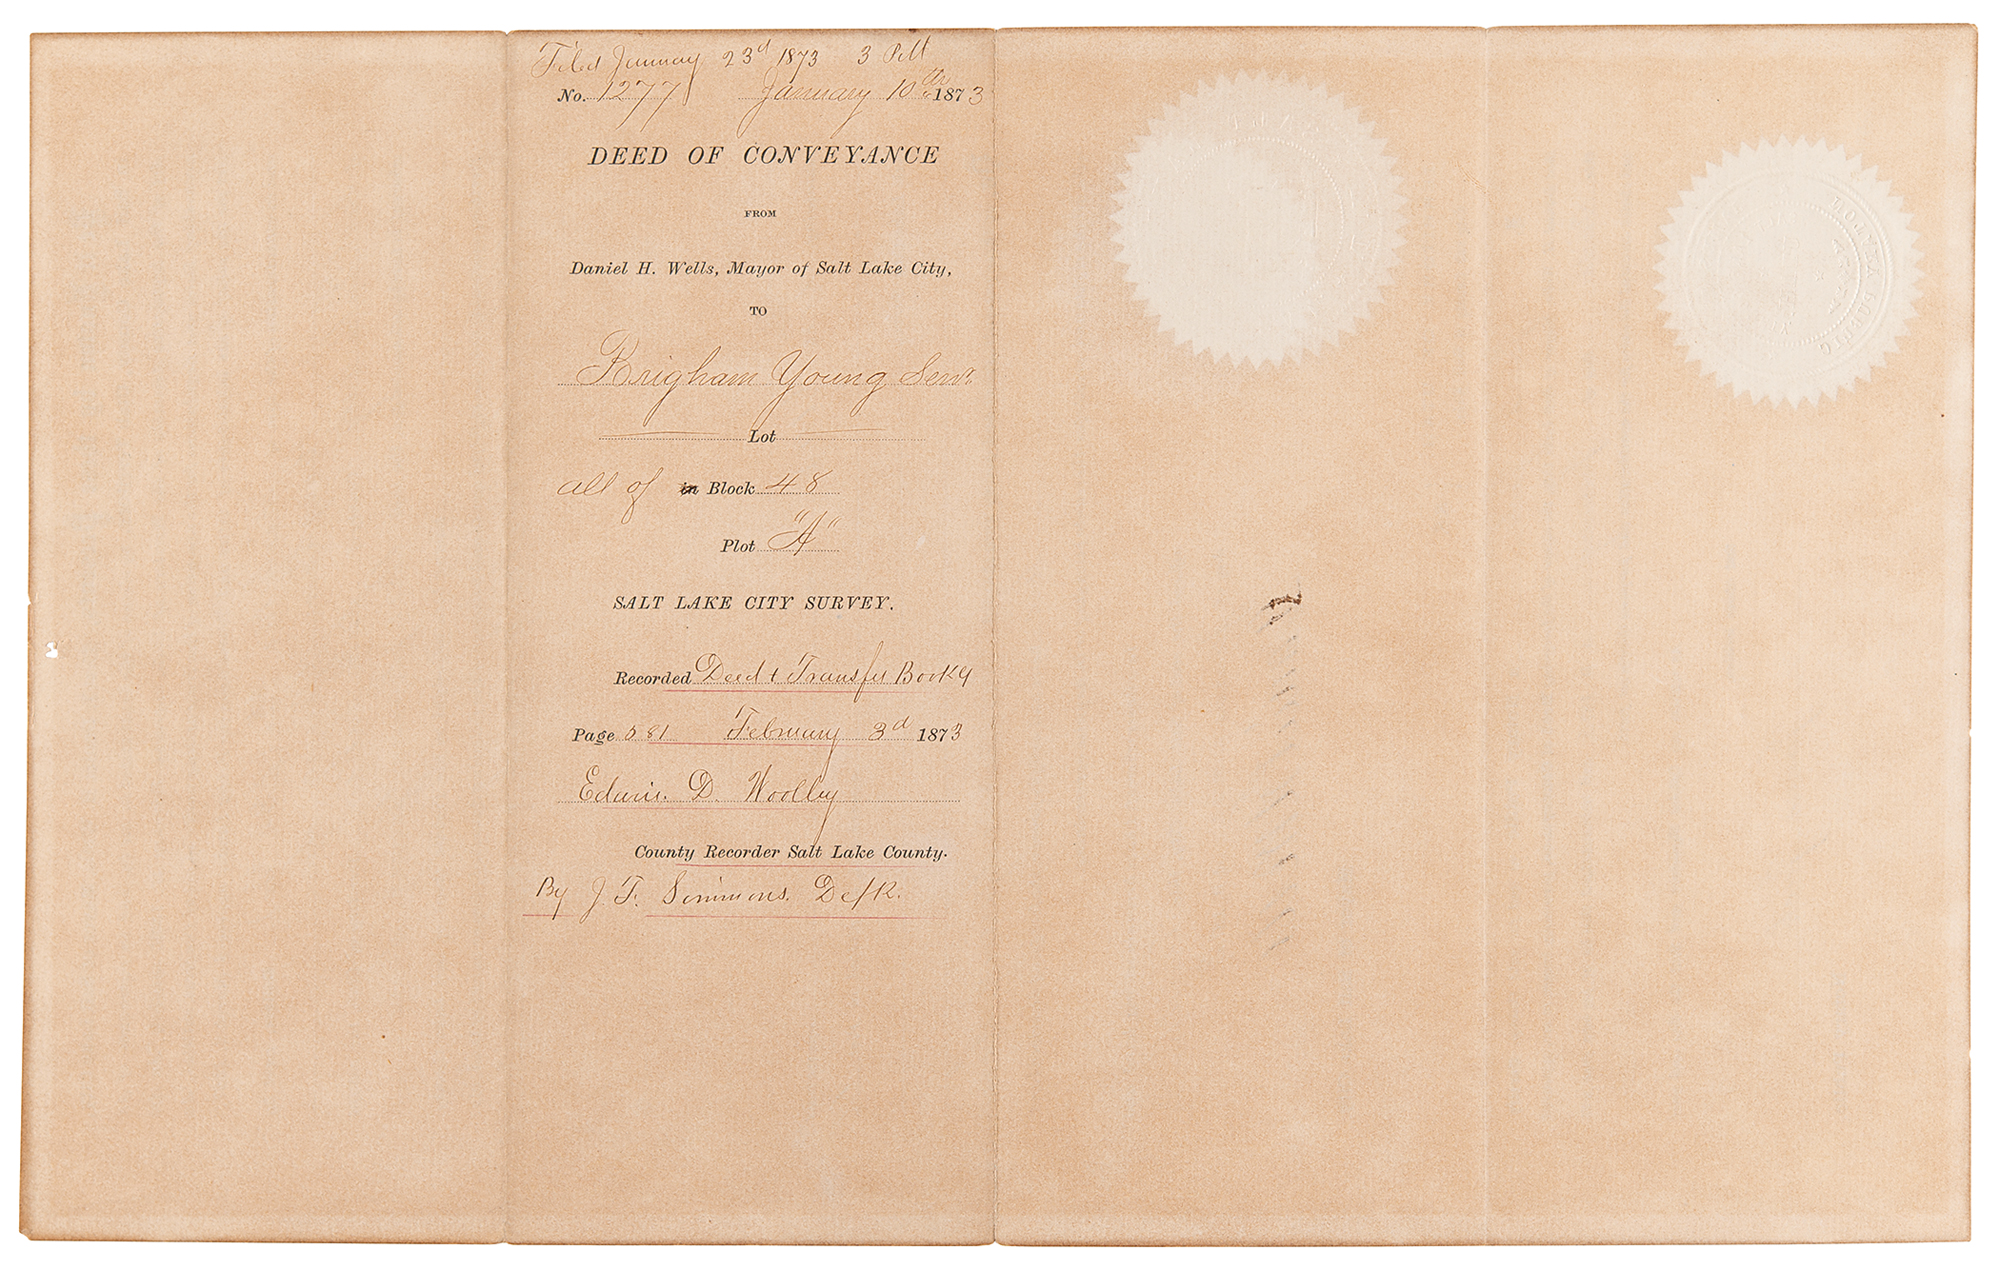 Filed January 23d 1873 3 P.M
No. 1277 January 10th 1873
DEED OF CONVEYANCE
FROM
Daniel H. Wells, Mayor of Salt Lake City,
TO
Brigham Young Senr.
Lot
all of in Block 48
Plot "A"
SALT LAKE CITY SURVEY.
Recorded Deed & Transfer Book
Page 581 February 3d 1873
Edwin. D. Woolley
County Recorder Salt Lake County.
By J. F. Simmons. Dep R.
NOTARY PUBLIC